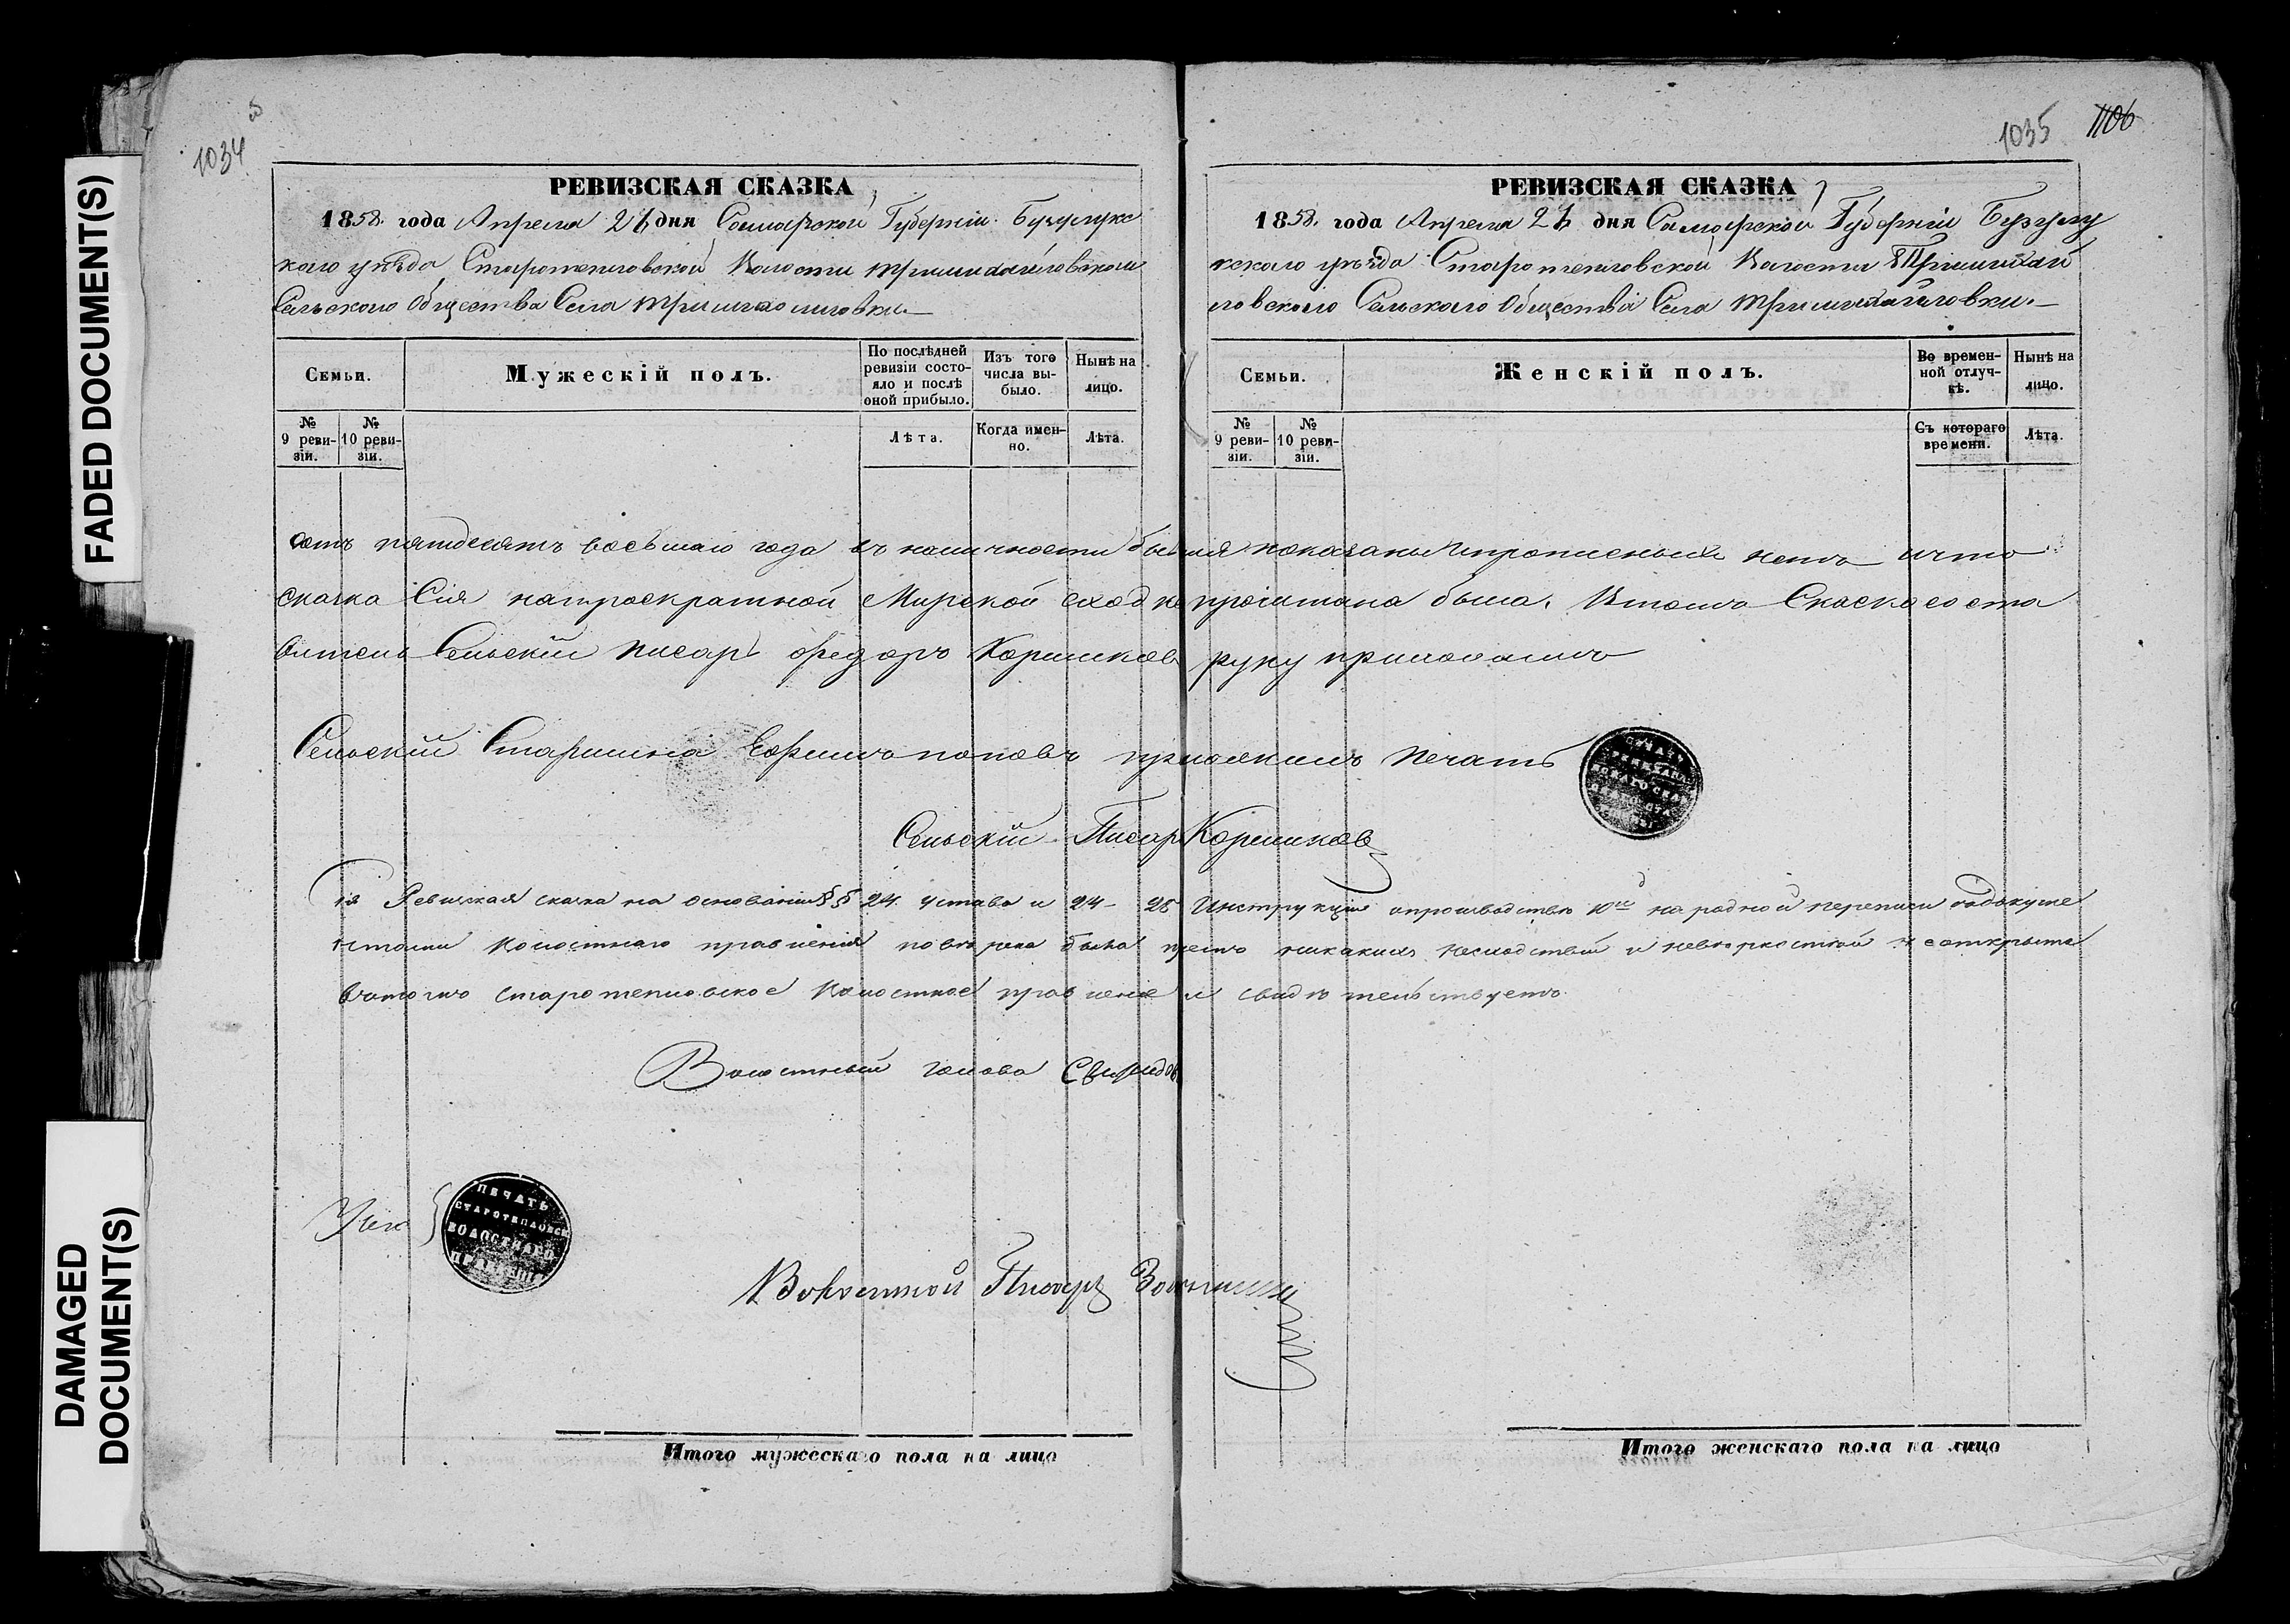 FADED DOCUMENT(S)
DAMAGED
DOCUMENT(S)
1034
РЕВИЗСКАЯ СКАЗКА
1858. года Апреля 21 дня Самарской Губерніи Бузулукс
каго уѣзда Старотепловской Волости
Сельскаго Общества Села
Семьи.
Мужескій полъ.
По послѣдней ревизіи состояло и послѣ оной прибыло.
Изъ того числа выбыло.
Нынѣ на лицо.
№ 9 ревизіи.
№ 10 ревизіи.
Лѣта.
Когда именно.
Лѣта.
1035 1106
РЕВИЗСКАЯ СКАЗКА
1858. года Апреля 21 дня Самарской Губерніи Бузулу
кскаго уѣзда Старотепловской Волости
ловского Сельскаго Общества Села
Семьи.
Женскій полъ.
Во временной отлучкѣ.
Нынѣ на лицо.
№ 9 ревизіи.
№ 10 ревизіи.
Съ котораго времени.
Лѣта.
сотъ пятдесятъ восьмаго года въ наличности были показаны и прописныхъ нетъ ичто
сказка Сія натроекратной Мирской сходке прочитана была. Втомъ Сказкасоста
витель Сельскій писарь Федоръ Коршиков руку приложилъ
Сельскій Старшина Ефимъ поповъ приложилъ печать
Сельскій Писарь Коршиков
Сія Ревизская сказка на основаніи §§ 24. устава и 24- 25 Инструкціи опроизводствю 10й народной переписи
волостнаго правленія поверена была причемъ никакихъ и неверностей неоткрыто
вчемъ старотепловское Волостное правленіе и свидѣтельствуетъ
Волостный голова Свиридов
ПЕЧАТЬ
СТАРОТЕПЛОВСК
ВОЛОСТНАГО
ПРАВЛЕНІЯ
Волостной Писарь
Итого мужескаго пола на лицо
Итого женскаго пола на лицо